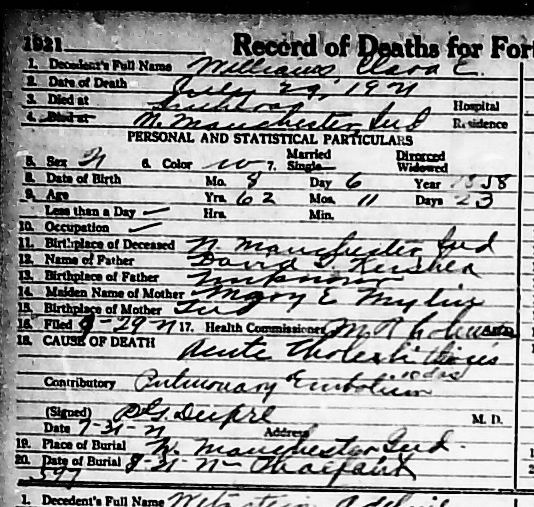 1921 Record of Deaths for Fort
1. Decedent's Full Name Williams Clara E.
2. Date of Death July 29, 1921
3. Died at Lutheran Hospital
4. Died at N. Manchester Ind Residence
PERSONAL AND STATISTICAL PARTICULARS
5. Sex 6. Color W 7. Married Single Divorced Widowed
8. Date of Birth Mo. 8 Day 6 Year 1858
9. Age Yrs. 62 Mos. 11 Days 23
Less than a Day Hrs. Min.
10. Occupation
11. Birthplace of Deceased N. Manchester Ind
12. Name of Father David
13. Birthplace of Father Unknown
14. Maiden Name of Mother Mary E
15. Birthplace of Mother Ind
16. Filed 17. Health Commissioner
18. CAUSE OF DEATH Acute
Contributory Pulmonary Embolism
(Signed) M. D.
Date 7-31-21 Address
19. Place of Burial N. Manchester Ind.
20. Date of Burial
1. Decedent's Full Name